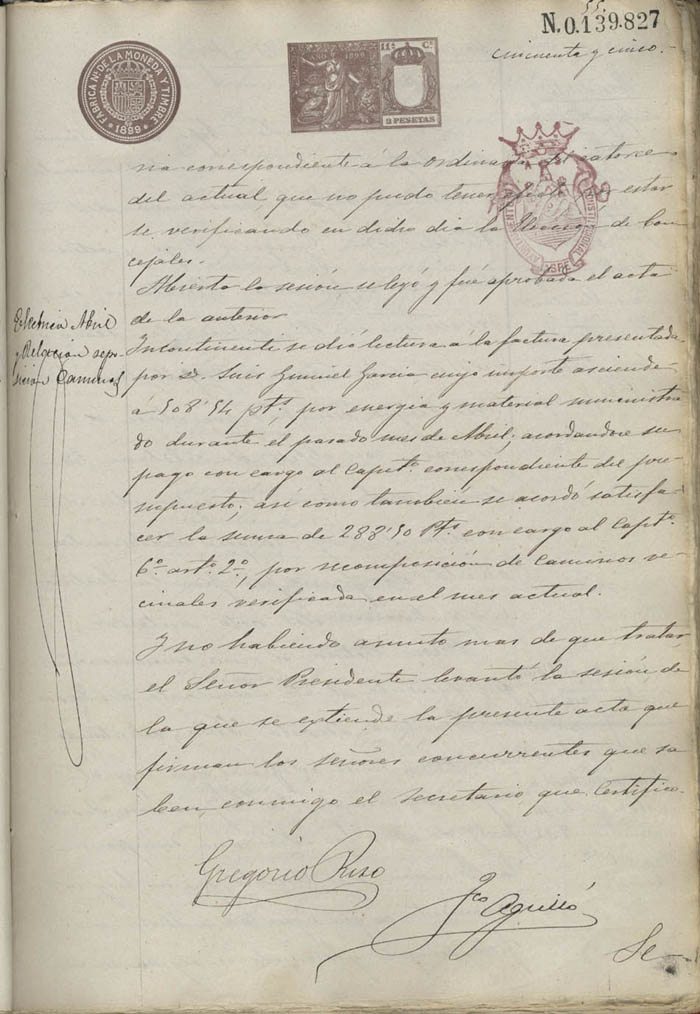 55.
N.0.139.827
cincuenta y cinco.
FABRICA NAL. DE LA MONEDA Y TIMBRE
1899
AÑO 1899
11ª C.
2 PESETAS
AYUNTAMIENTO CONSTITUCIONAL
ASPE
ria correspondiente á la ordinaria catorce
del actual, que no pudo tener efecto por estar
se verificando en dicho dia la elección de Con
cejales.
Abierta la sesión se leyó y fué aprobada el acta
de la anterior
Electricia Abril
y Relación repo
sición Caminos
Incontinenti se dió lectura á la factura presentada
por D. Luis Gumiel Garcia cuyo importe asciende
á 508'54 pts, por energia y material suministra
do durante el pasado mes de Abril; acordandose su
pago con cargo al Capto. correspondiente del pre
supuesto; así como tambien se acordó satisfa
cer la suma de 288'50 Pts con cargo al Capto.
6º artº. 2º, por recomposición de Caminos ve
cinales verificada en el mes actual.
Y no habiendo asunto mas de que tratar,
el Señor Presidente levantó la sesión de
la que se extiende la presente acta que
firman los señores concurrentes que sa
ben, conmigo el secretario que Certifico.
Gregorio Rizo
Fco Agulló
Se